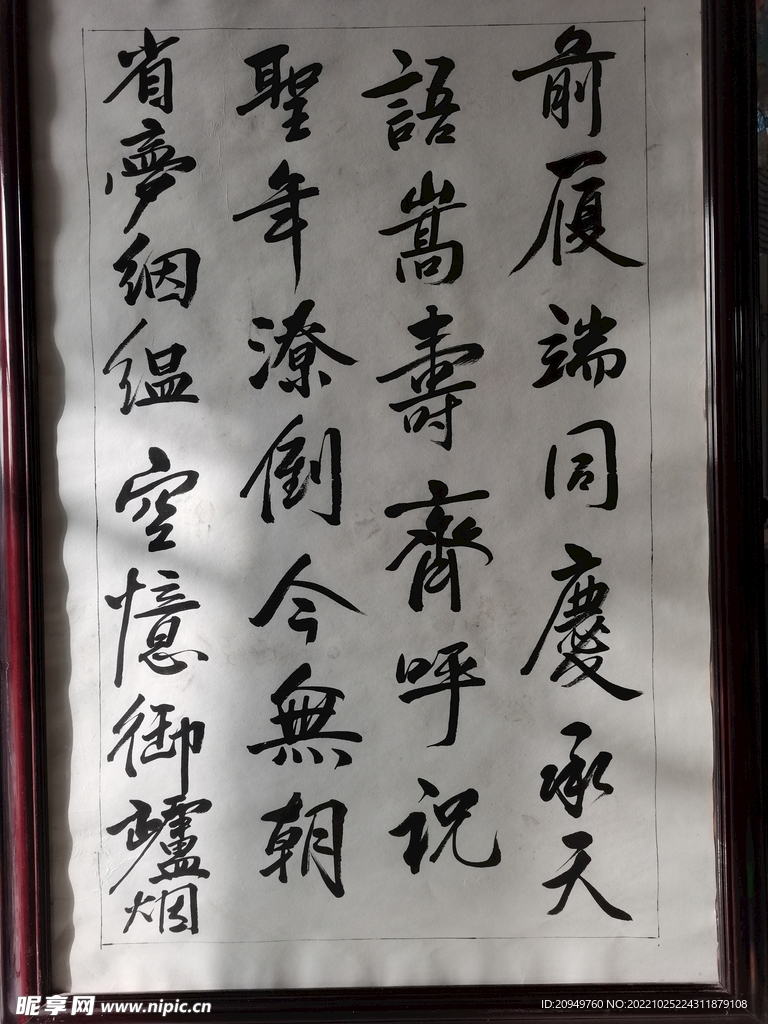 前履端同慶承天
語嵩壽齊呼祝
聖年潦倒今無朝
省夢絪緼空憶御罏烟
昵享网 www.nipic.cn
ID:20949760 NO:20221025224311879108